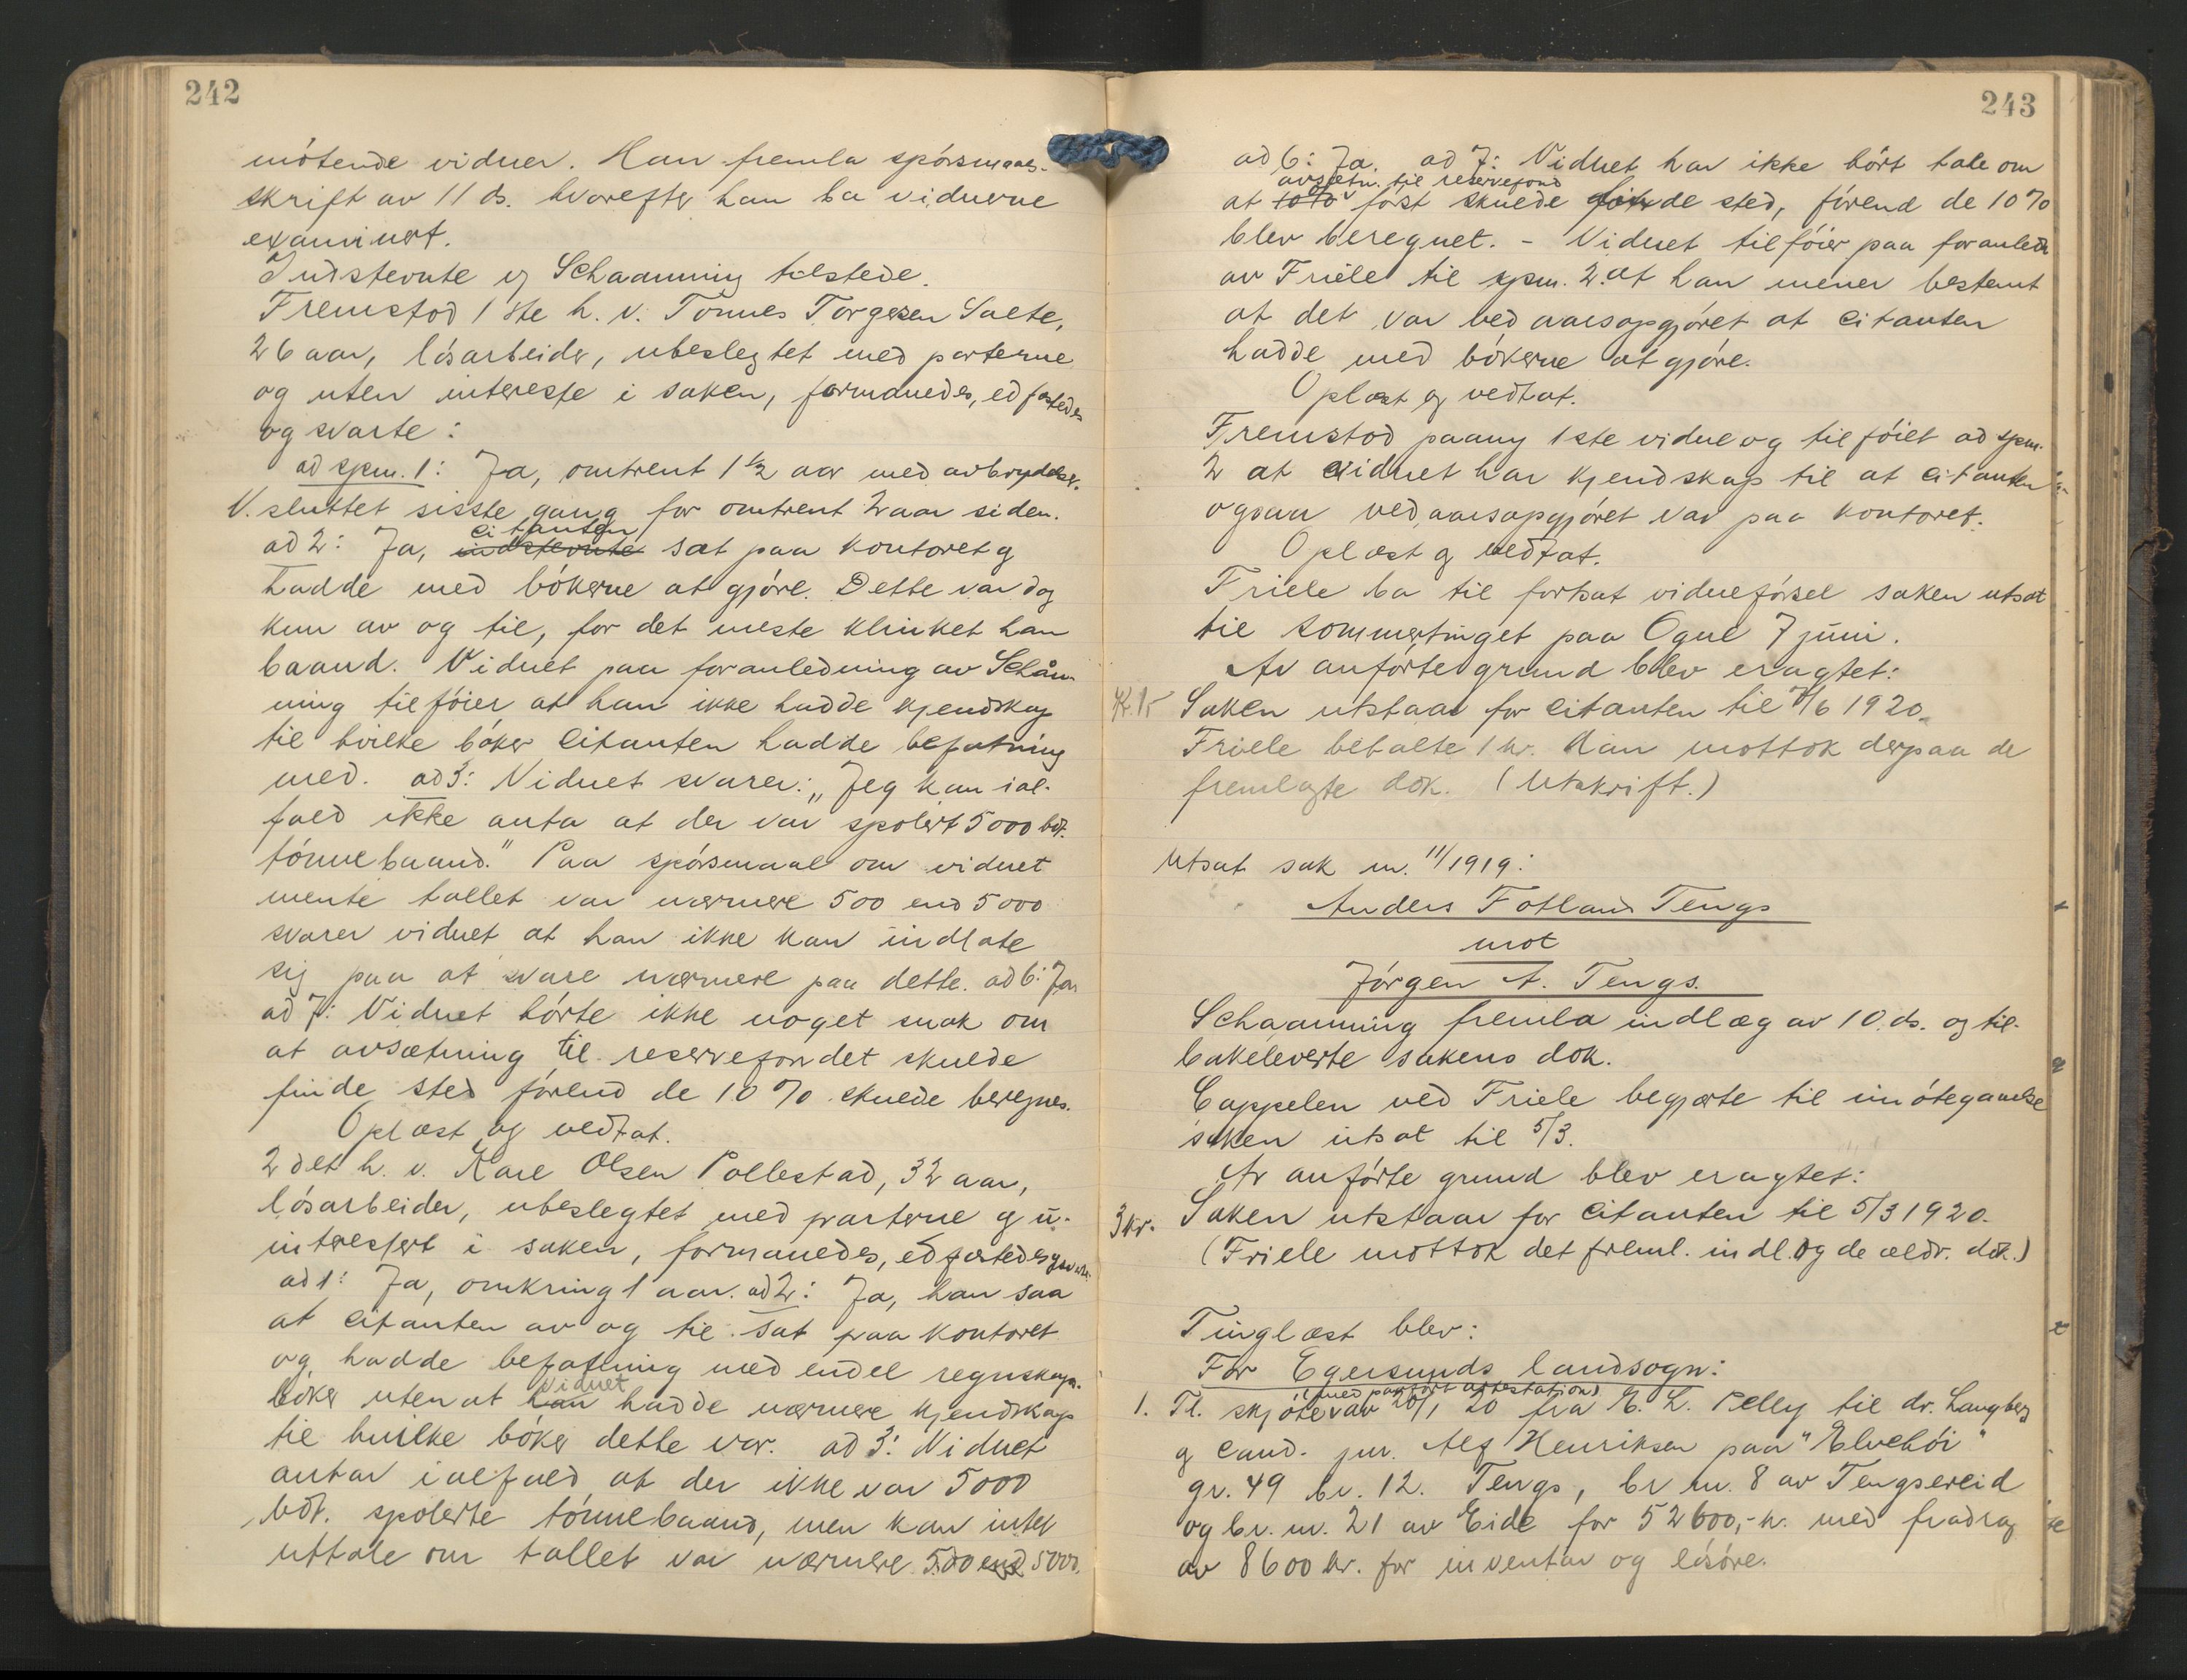 242
mötende vidner. Han fremla spörsmaals-
skrift av 11 ds. hvorefter han ba vidnerne
examinert.
Indstevnte og Schaanning tilstede.
Fremstod 1ste h. v. Tönnes Torgersen Salte,
26 aar, lösarbeider, ubeslegtet med parterne
og uten interesse i saken, formanedes, edfæstedes
og svarte:
ad spm. 1: Ja, omtrent 1½ aar med avbrydelser.
V. sluttet sisste gang for omtrent 2 aar siden.
citanten
ad 2: Ja, indstevnte sat paa kontoret og
hadde med bökerne at gjöre. Dette var dog
kun av og til, for det meste klinket han
baand. Vidnet paa foranledning av Schån-
ning tilföier at han ikke hadde kjendskap
til hvilke böker citanten hadde befatning
med. ad 3: Vidnet svarer: „Jeg kan ial-
fald ikke anta at der var spolert 5000 bdt.
tönnebaand." Paa spörsmaal om vidnet
mente tallet var nærmere 500 end 5000
svarer vidnet at han ikke kan indlate
sig paa at svare nærmere paa dette. ad 6: Ja.
ad 7: Vidnet hörte ikke noget snak om
at avsætning til reservefondet skulde
finde sted förend de 10 % skulde beregnes.
Oplæst og vedtat.
2det h. v. Karl Olsen Pollestad, 32 aar,
lösarbeider, ubeslegtet med parterne og u-
interessert i saken, formanedes, edfæstedes og svarte:
ad 1: Ja, omkring 1 aar. ad 2: Ja, han saa
at citanten av og til sat paa kontoret
og hadde befatning med endel regnskaps-
vidnet
böker uten at han hadde nærmere kjendskap
til hvilke böker dette var. ad 3: Vidnet
antar ialfald at der ikke var 5000
bdt. spolerte tönnebaand, men kan intet
uttale om tallet var nærmere 500 end 5000.
243
ad 6: Ja. ad 7: Vidnet har ikke hört tale om
avsetn. til reservefond
at 10% först skulde finde sted, förend de 10 %
blev beregnet. - Vidnet tilföier paa foranledn.
av Friele til spm. 2 at han mener bestemt
at det var ved aarsopgjöret at citanten
hadde med bökerne at gjöre.
Oplæst og vedtat.
Fremstod paany 1ste vidne og tilföiet ad spm.
2 at vidnet har kjendskap til at citanten
ogsaa ved aarsopgjöret var paa kontoret.
Oplæst og vedtat.
Friele ba til fortsat vidneförsel saken utsat
til sommertinget paa Ogne 7 juni.
Av anförte grund blev eragtet:
Kr. 15 Saken utstaar for citanten til 7/6 1920.
Friele betalte 1 kr. Han mottok derpaa de
fremlagte dok. (Utskrift.)
Utsat sak nr. 11/1919:
Anders Fotland Tengs
mot
Jörgen A. Tengs.
Schaanning fremla indlæg av 10. ds. og til-
bakeleverte sakens dok.
Cappelen ved Friele begjærte til imötegaaelse
saken utsat til 5/3.
Av anförte grund blev eragtet:
3 kr. Saken utstaar for citanten til 5/3 1920.
(Friele mottok det freml. indl. og de ældr. dok.)
Tinglæst blev:
For Egersunds landsogn:
(med paafört attestation)
1. Tl. skjöte av 20/1 20 fra E. L. Pelly til dr. Langberg
og cand. jur. Alf Henriksen paa "Elvebói"
gr. 49 br. 12. Tengs, br nr. 8 av Tengsereid
og br. nr. 21 av Eide for 52600,- kr. med fradrag
av 8600 kr. for inventar og lösöre.